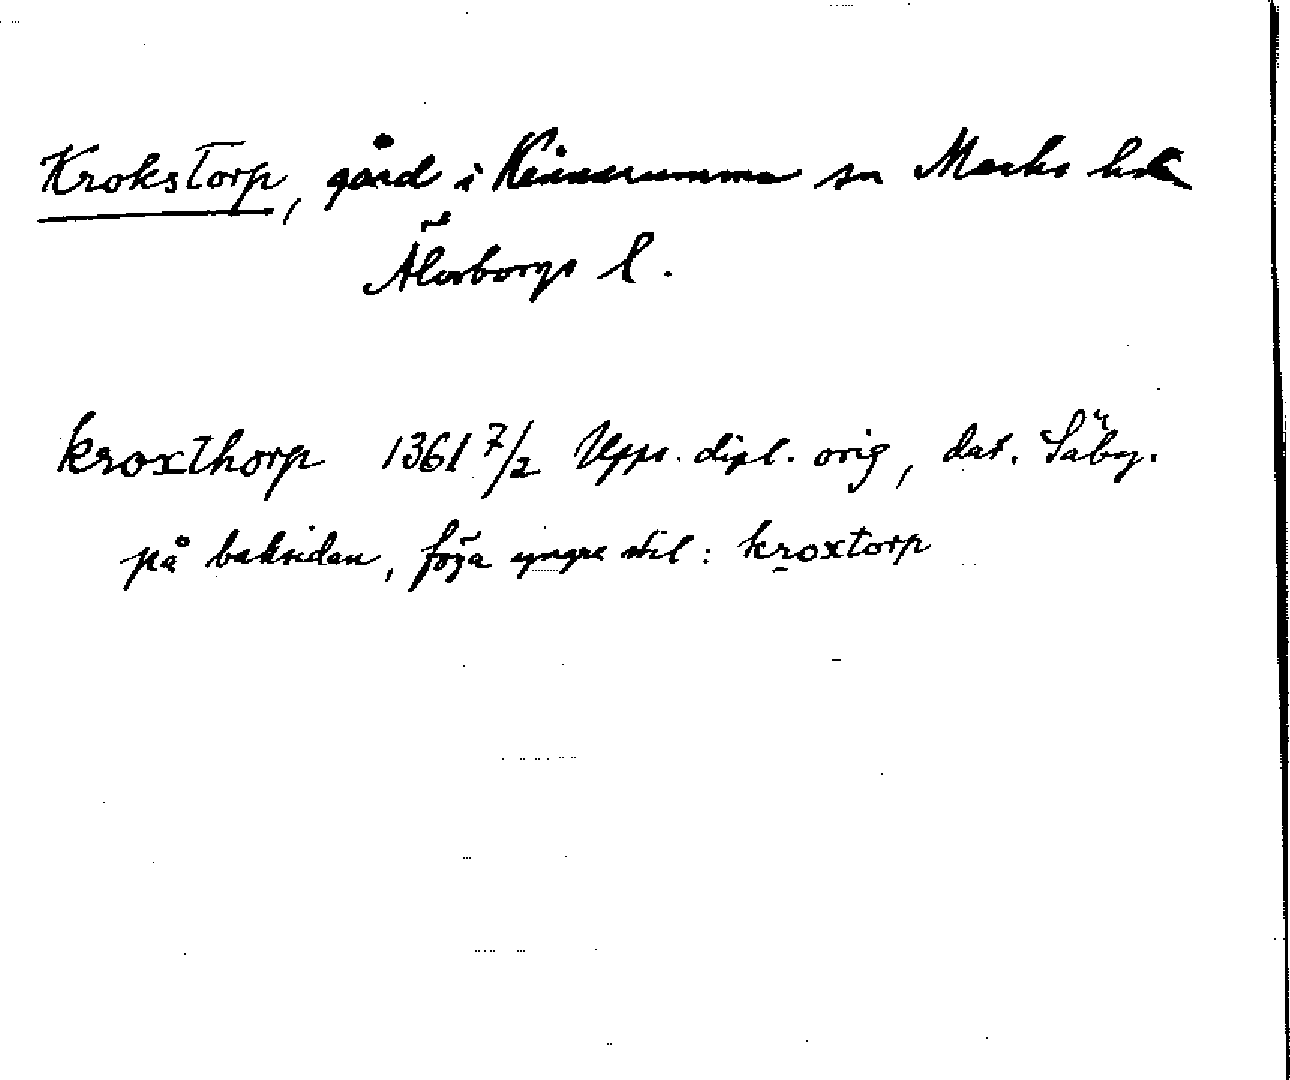 Krokstorp, gård i Kinnarumma sn Marks hd
Älvsborgs l.
kroxthorp 1361 7/2 Upps. dipl. orig, dat. Säby.
på baksidan, föga yngre stil: kroxtorp